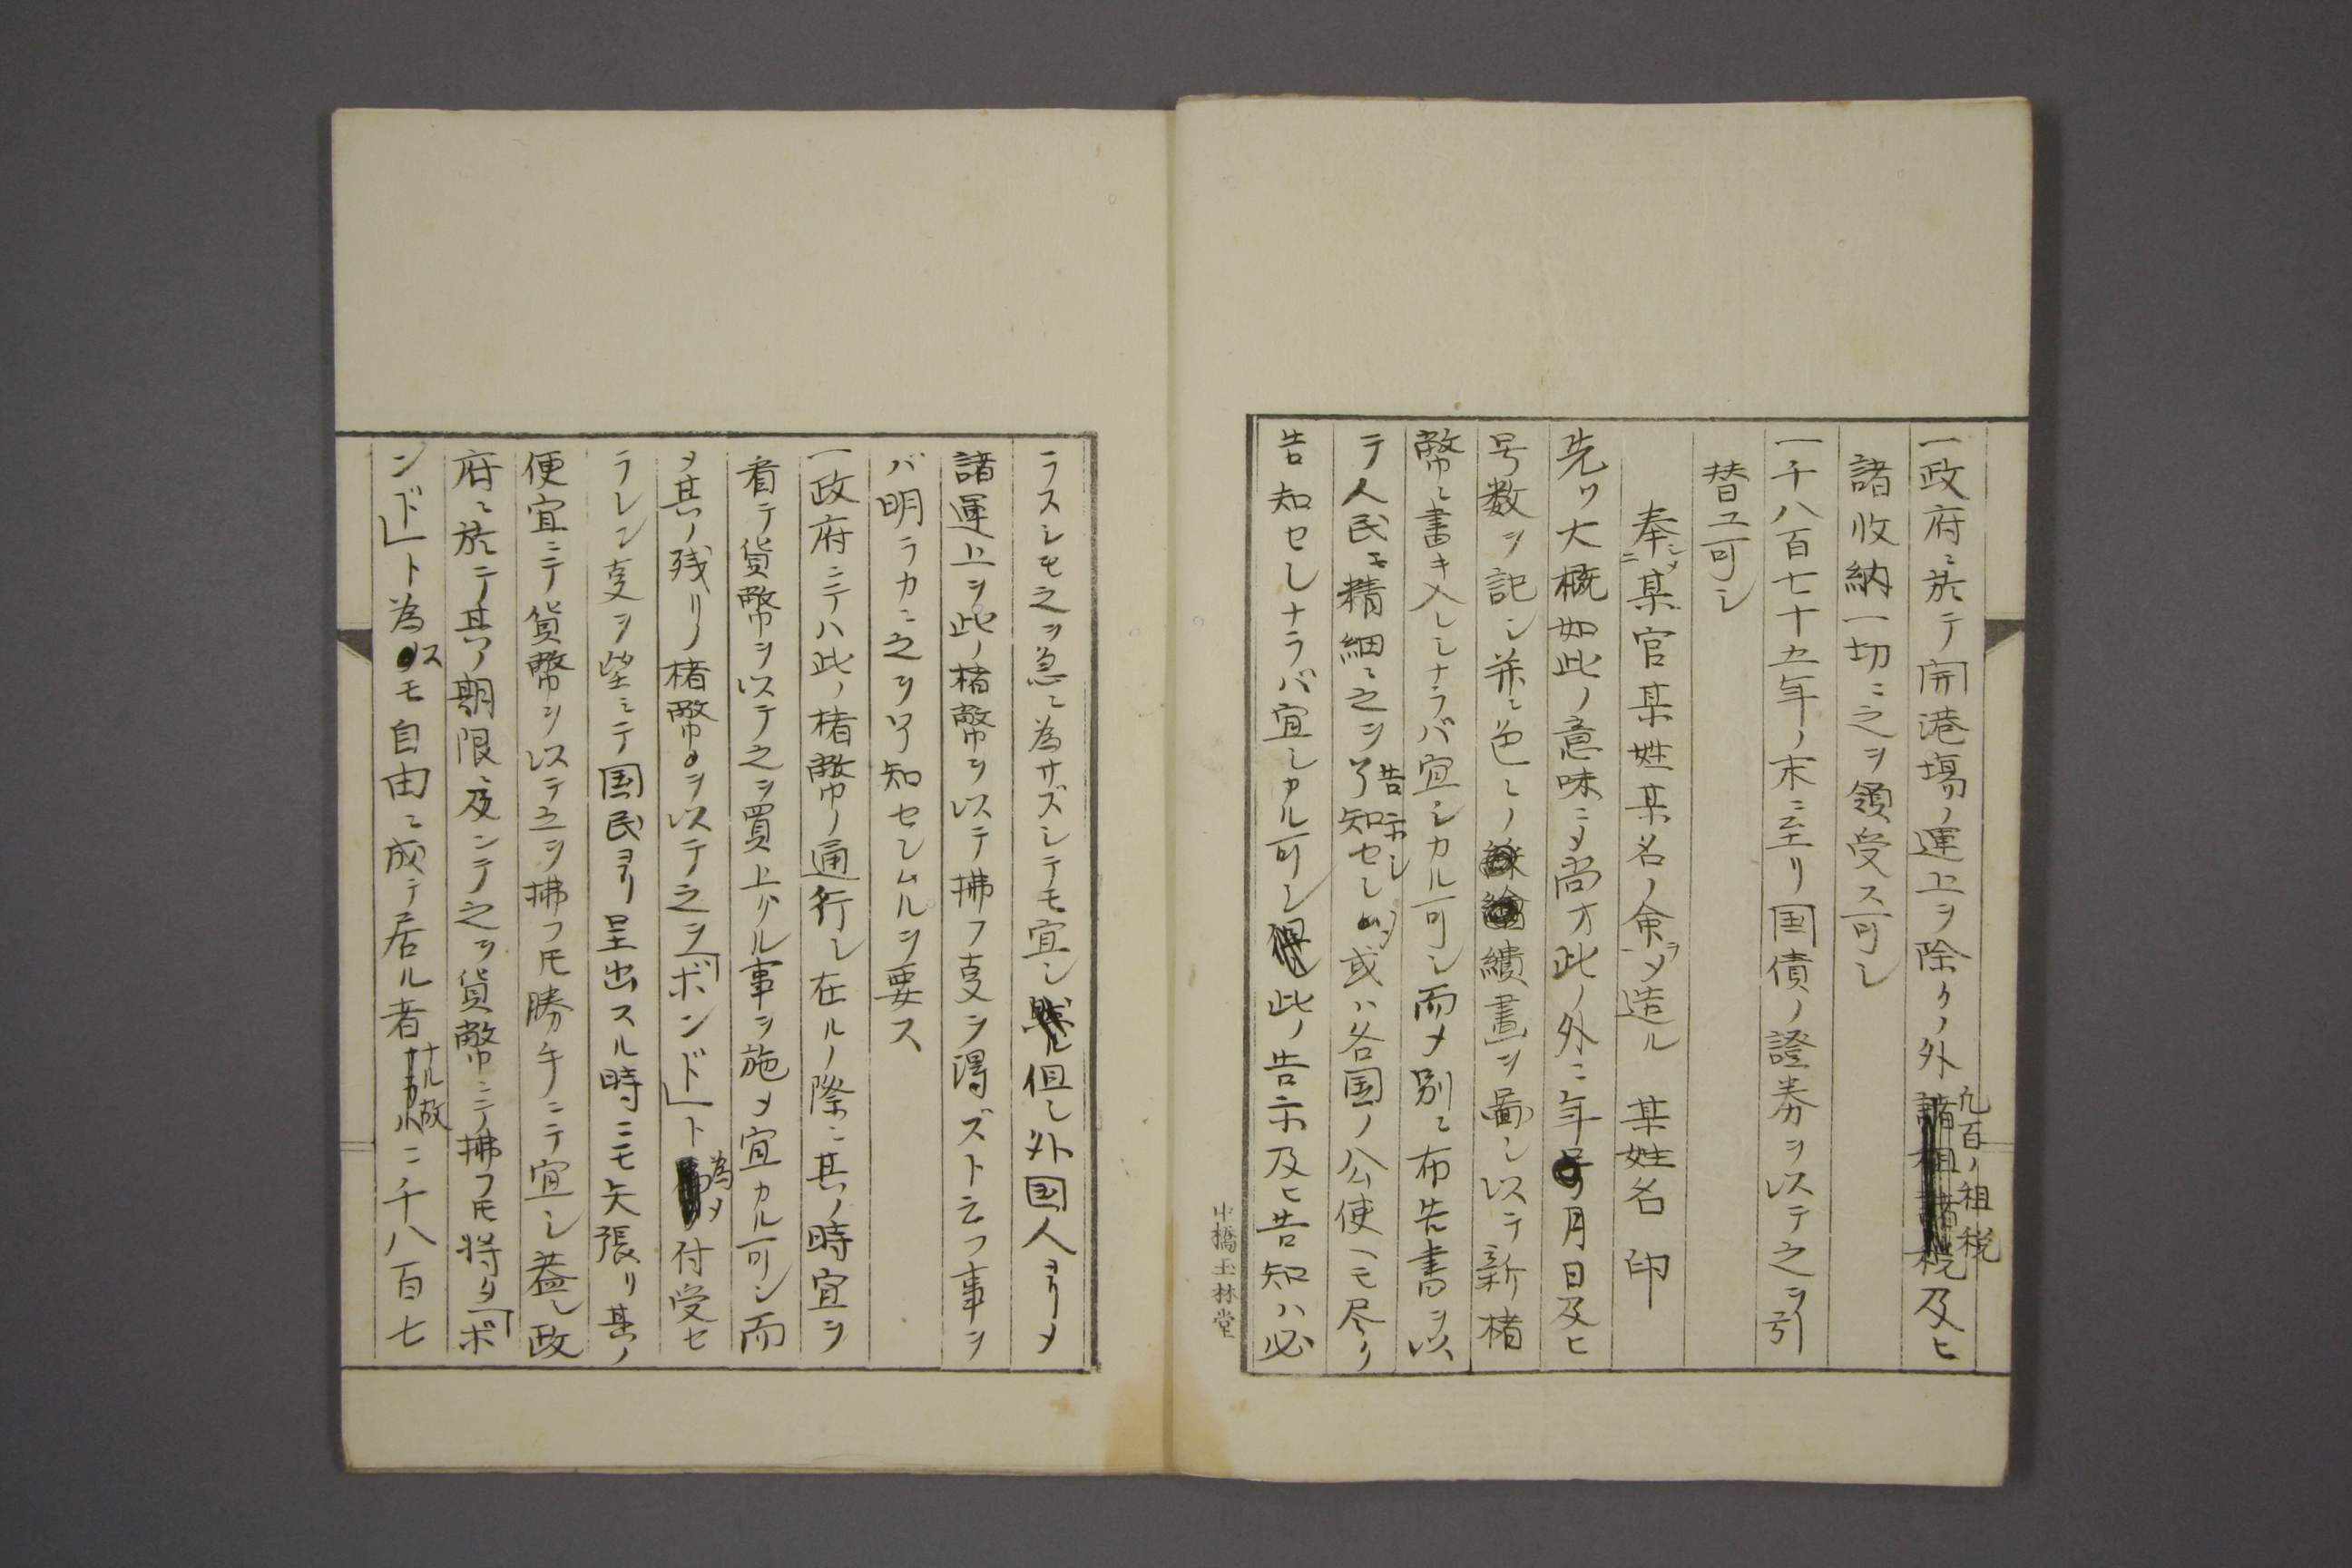 一政府ニ於テ開港場ノ運上ヲ除クノ外凢百ノ租税及ヒ
諸收納一切ニ之ヲ領受ス可シ
一千八百七十五年ノ末ニ至リ国債ノ證券ヲ以テ之ヲ引
替ユ可シ
奉シテ某官某姓某名ノ命ヲ造ル 某姓名 印
先ツ大概如此ノ意味ニメ尚オ此ノ外ニ年号月日及ヒ
号数ヲ記シ并ニ色〻ノ繢畫ヲ圖シ以テ新楮
幣ニ書キ入レシナラバ宜シカル可シ而メ別ニ布告書ヲ以
テ人民ヱ精細ニ之ヲ告示シ或ハ各国ノ公使ヘモ尽ク
告知セシナラバ宜シカル可シ此ノ告示及ヒ告知ハ必
中橋玉林堂
ラスシモ之ヲ急ニ為サズシテモ宜シ但シ外国人ヨリメ
諸運上ヲ此ノ楮幣ヲ以テ拂フ支ヲ得ズト云フ事ヲ
バ明ラカニ之ヲ了知セシムルヲ要ス
一政府ニテハ此ノ楮幣ノ通行シ在ルノ際ニ其ノ時宜ヲ
看テ貨幣ヲ以テ之ヲ買上ケル事ヲ施メ宜カル可シ而
メ其ノ残リノ楮幣ヲ以テ之ヲ「ボンド」ト為メ付受セ
ラレン支ヲ望ミテ国民ヨリ呈出スル時ニモ矢張リ其ノ
便宜ニテ貨幣ヲ以テ之ヲ拂フモ勝手ニテ宜シ蓋シ政
府ニ於テ其ノ期限ニ及ンテ之ヲ貨幣ニテ拂フモ将タ「ボ
ンド」ト為スモ自由ニ成テ居ル者ナル故ニ千八百七